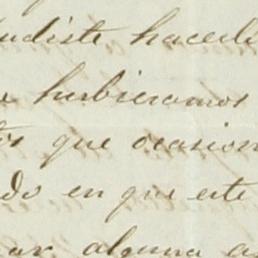 udiste hacerlo
hubieramos
que ocasion
do en que este
ar alguna